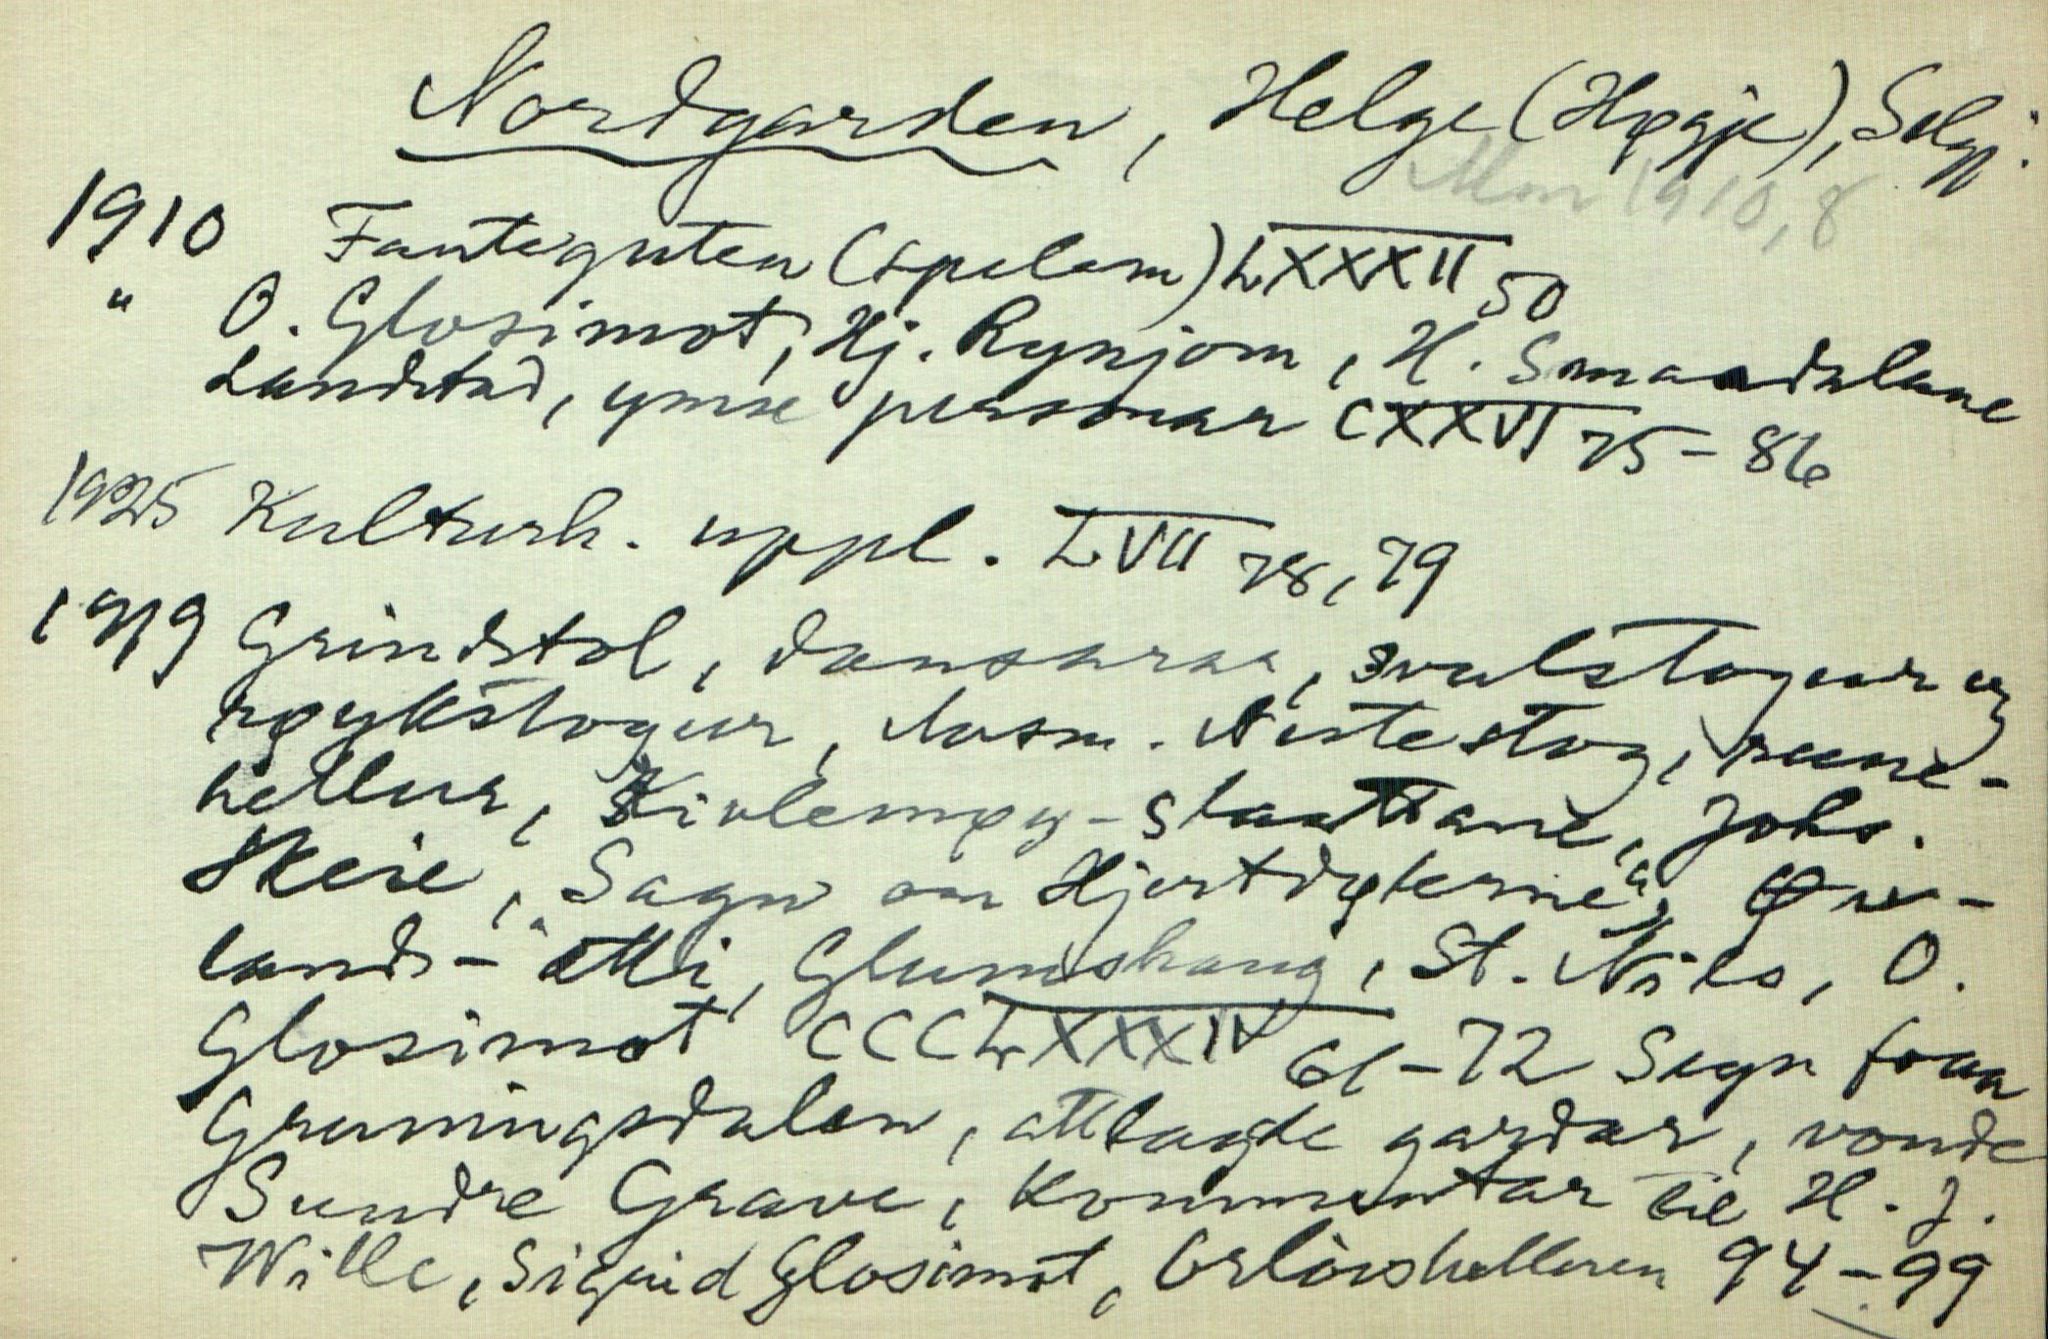 Nordgarden, Helge (Høgje), Selj.
Mm 1910, 8
1910 Fanteguten (spelem) LXXXII 50
" O. Glosimot, Hj. Rynjom, H. Smaadalane
Landstad, ymse personar CXXVI 75-86
1925 Kulturh. uppl. LVII 78, 79
1919 Grindstol, dansarar, svalstogur og
røykstogur, Aasm. Nistestog, rune-
hellur, Kivlemøy-slaattane, Johs.
Skeie, "Sagn om Hjortdølerne",
lands-ætti, Glumshaug, St. Nils, O.
Glosimot CCCLXXXIV 61-72 Segn fraa
Gruningsdalen, attlagde gardar, vonde
Sundre Grave, kommentar til H. J.
Wille, Sigrid Glosimot, 94-99